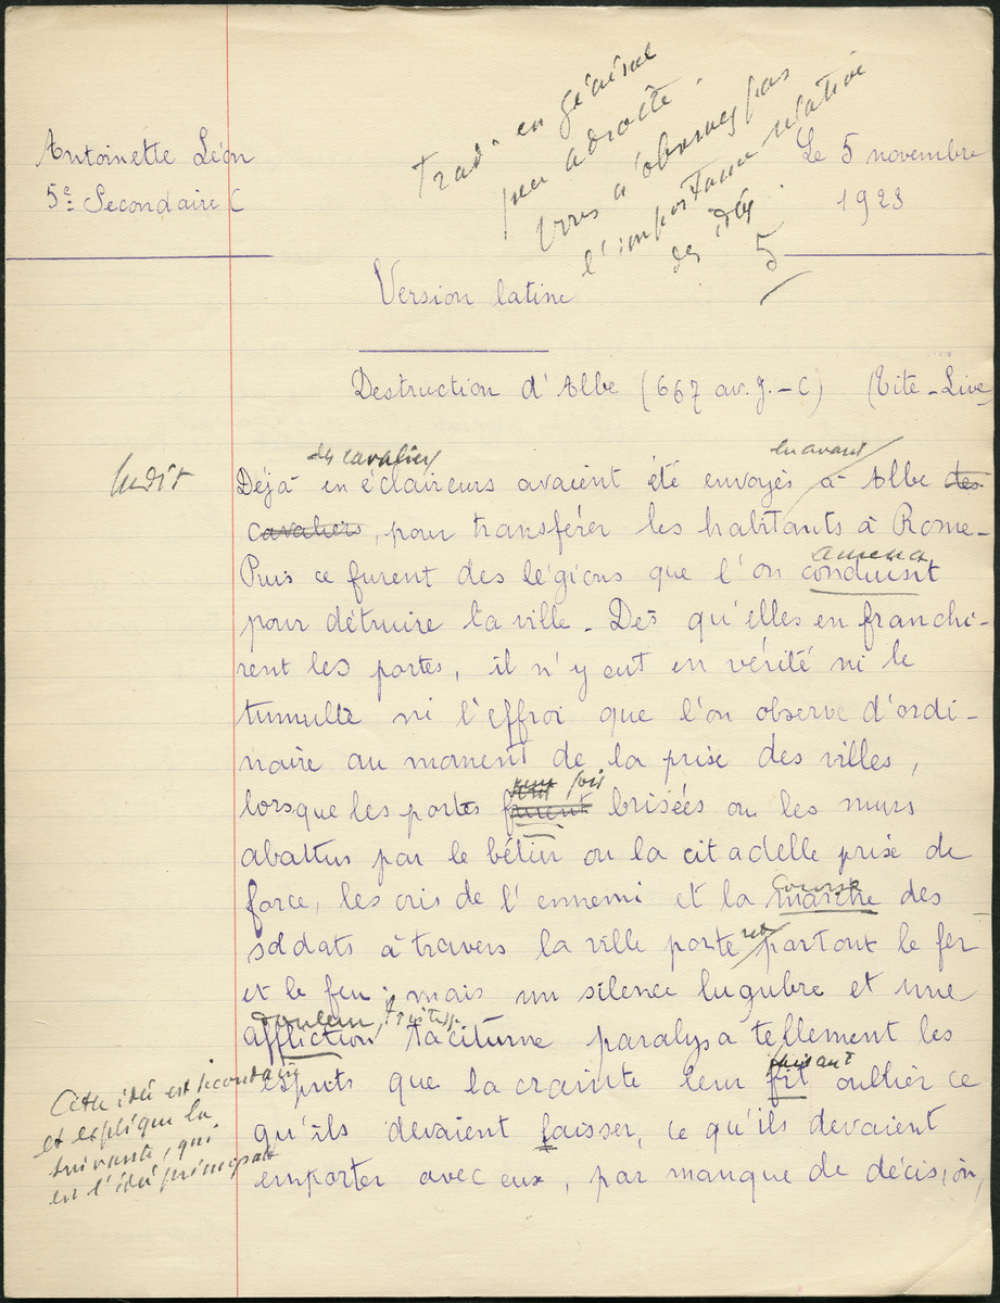 Antoinette Léon
5e Secondaire C
Trad° en général
peu adroite.
Vous n'observez pas
l'importance relative
des idées.
5
Le 5 novembre
1923
Version latine
Destruction d'Albe (667 av. J.-C) (Tite-Live
des cavaliers
en avant
Déjà en éclaireurs avaient été envoyés à Albe des
cavaliers, pour transférer les habitants à Rome.
amena
Puis ce furent des légions que l'on conduisit
pour détruire la ville. Dès qu'elles en franchi-
rent les portes, il n'y eut en vérité ni le
tumulte ni l'effroi que l'on observe d'ordi-
naire au moment de la prise des villes,
lorsque les portes furent brisées ou les murs
abattus par le bélier ou la citadelle prise de
force, les cris de l'ennemi et la marche des
course
soldats à travers la ville porte partout le fer
et le feu ; mais un silence lugubre et une
douleur, tristesse
affliction taciturne paralysa tellement les
esprits que la crainte leur fit oublier ce
faisant
qu'ils devaient laisser, ce qu'ils devaient
emporter avec eux, par manque de décision,
Cette idée est secondaire
et explique la
suivante, qui
est l'idée principale